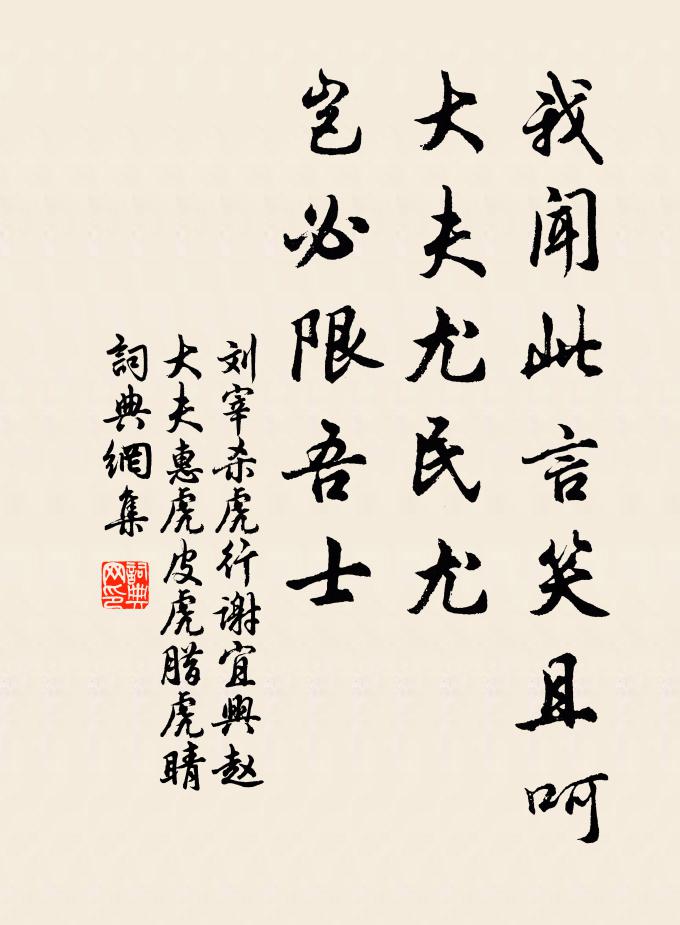 我闻此言笑且呵
大夫尤民尤
岂必限吾士
刘宰杀虎行谢宜興赵
大夫惠虎皮虎腊虎睛
詞典網集
詞典
网印